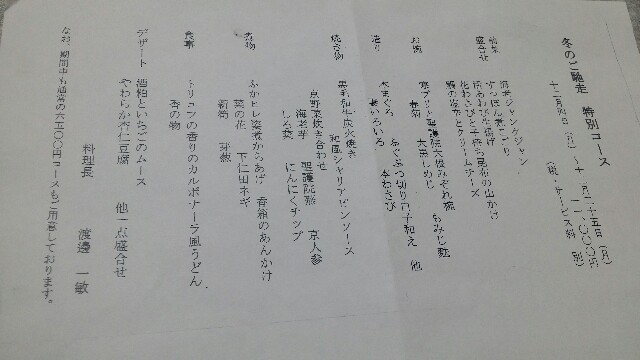 冬のご馳走　特別コース
十二月四日（月）～十二月二十五日（月）
一一、〇〇〇円
（税・サービス料　別）
前菜
盛合せ
渡り蟹ジャンケジャン
すっぽん煮こごり
柚
と子持ち昆布の出かけ
とクリームチーズ
お椀
寒ブリと聖護院大根みぞれ椀　もみじ麩
春菊　大黒しめじ
造り
本まぐろ　ふぐぶつ切り白子和え　他
あしらいいろいろ　本わさび
焼き物
黒毛和牛炭火焼き
和風シャリアピンソース
京野菜炊き合わせ　聖護院蕪　京人参
海老芋　にんにくチップ
しろ菜
煮物
ふかヒレ姿煮からあげ　香箱のあんかけ
菜の花　下仁田ネギ
新筍　芽蕪
食事
トリュフの香りのカルボナーラ風うどん
香の物
デザート
酒粕といちごのムース
やわらか杏仁豆腐　他一点盛合せ
料理長　渡邊　一敏
なお、期間中も通常の六五〇〇円コースもご用意しております。